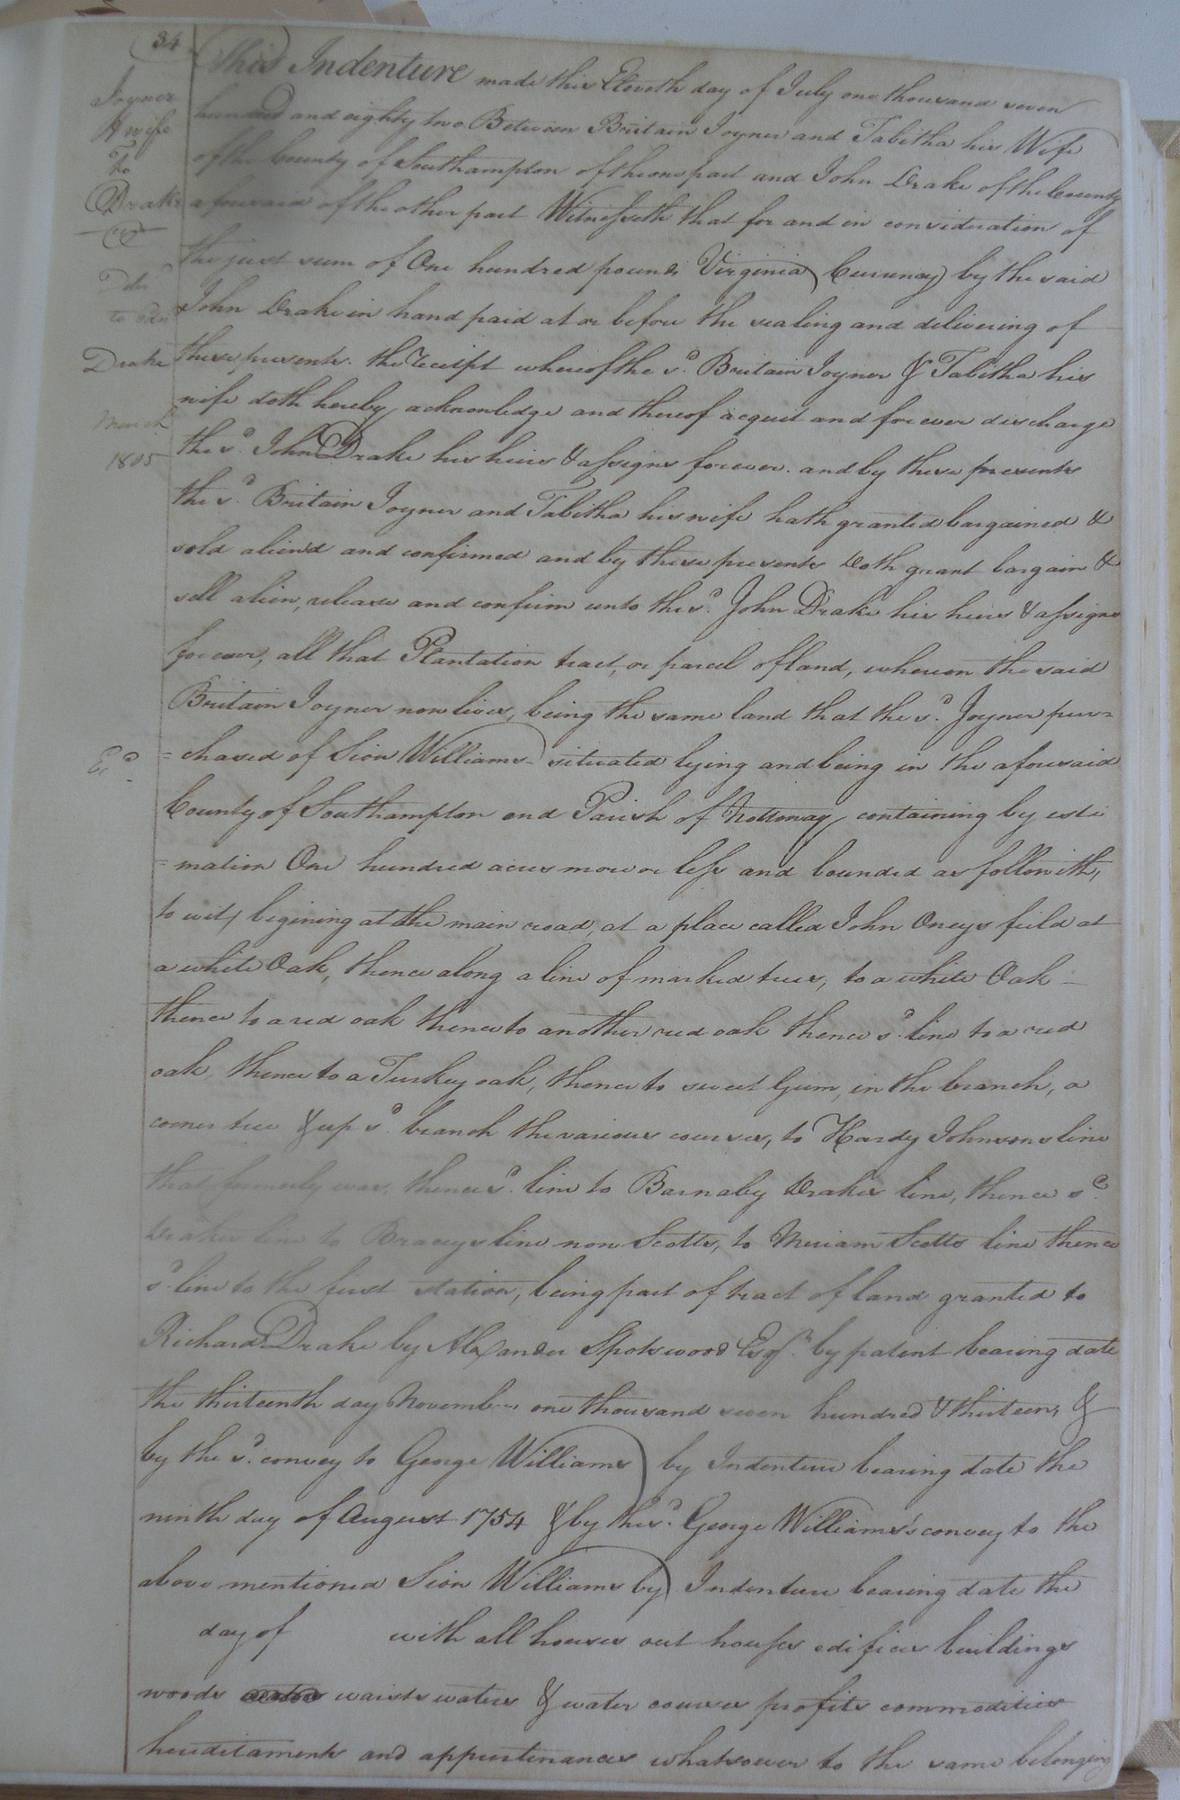 34
Joyner
& wife
To
Drake
Deld
to Jno
Drake
March
1805
Exd
This Indenture made this Eleventh day of July one thousand seven
hundred and eighty two Between Britain Joyner and Tabitha his Wife
of the County of Southampton of the one part and John Drake of the County
aforesaid of the other part Witnesseth that for and in consideration of
the just sum of One hundred pounds Virginia Currency by the said
John Drake in hand paid at or before the sealing and delivering of
these presents. the receipt whereof the sd. Britain Joyner & Tabitha his
wife doth hereby acknowledge and thereof acquit and forever discharge
the sd. John Drake his heirs & assigns forever. and by these presents
the sd. Britain Joyner and Tabitha his wife hath granted bargained &
sold alien'd and confirmed and by these presents Doth grant bargain &
sell alien, release and confirm unto the sd. John Drake his heirs & assigns
forever, all that Plantation tract, or parcel of land, whereon the said
Britain Joyner now lives, being the same land that the sd. Joyner pur=
=chased of Sion Williams situated lying and being in the aforesaid
County of Southampton and Parish of Nottoway containing by esti
=mation One hundred acres more or less and bounded as followith,
to wit, begining at the main road, at a place called John Oneys field at
a white Oak, thence along a line of marked trees, to a white Oak
thence to a red oak thence to another red oak thence sd. line to a red
oak, thence to a Turkey oak, thence to sweet Gum, in the branch, a
corner tree & up sd. branch the various courses, to Hardy Johnsons line
that formerly was, thence sd. line to Barnaby Drakes line, thence sd.
Drakes line to Braceys line now Scotts, to Miriam Scotts line thence
sd. line to the first station, being part of tract of land granted to
Richard Drake by Alexander Spotswood Esqr. by patent bearing date
the thirteenth day November one thousand seven hundred & thirteen, &
by the sd. convey to George Williams by Indenture bearing date the
ninth day of August 1754 & by the sd. George Williams's convey to the
above mentioned Sion Williams by Indenture bearing date the
day of with all houses out houses edifices buildings
woods waists waters & water courses profits commodities
hereditaments and appurtenances whatsoever to the same belonging